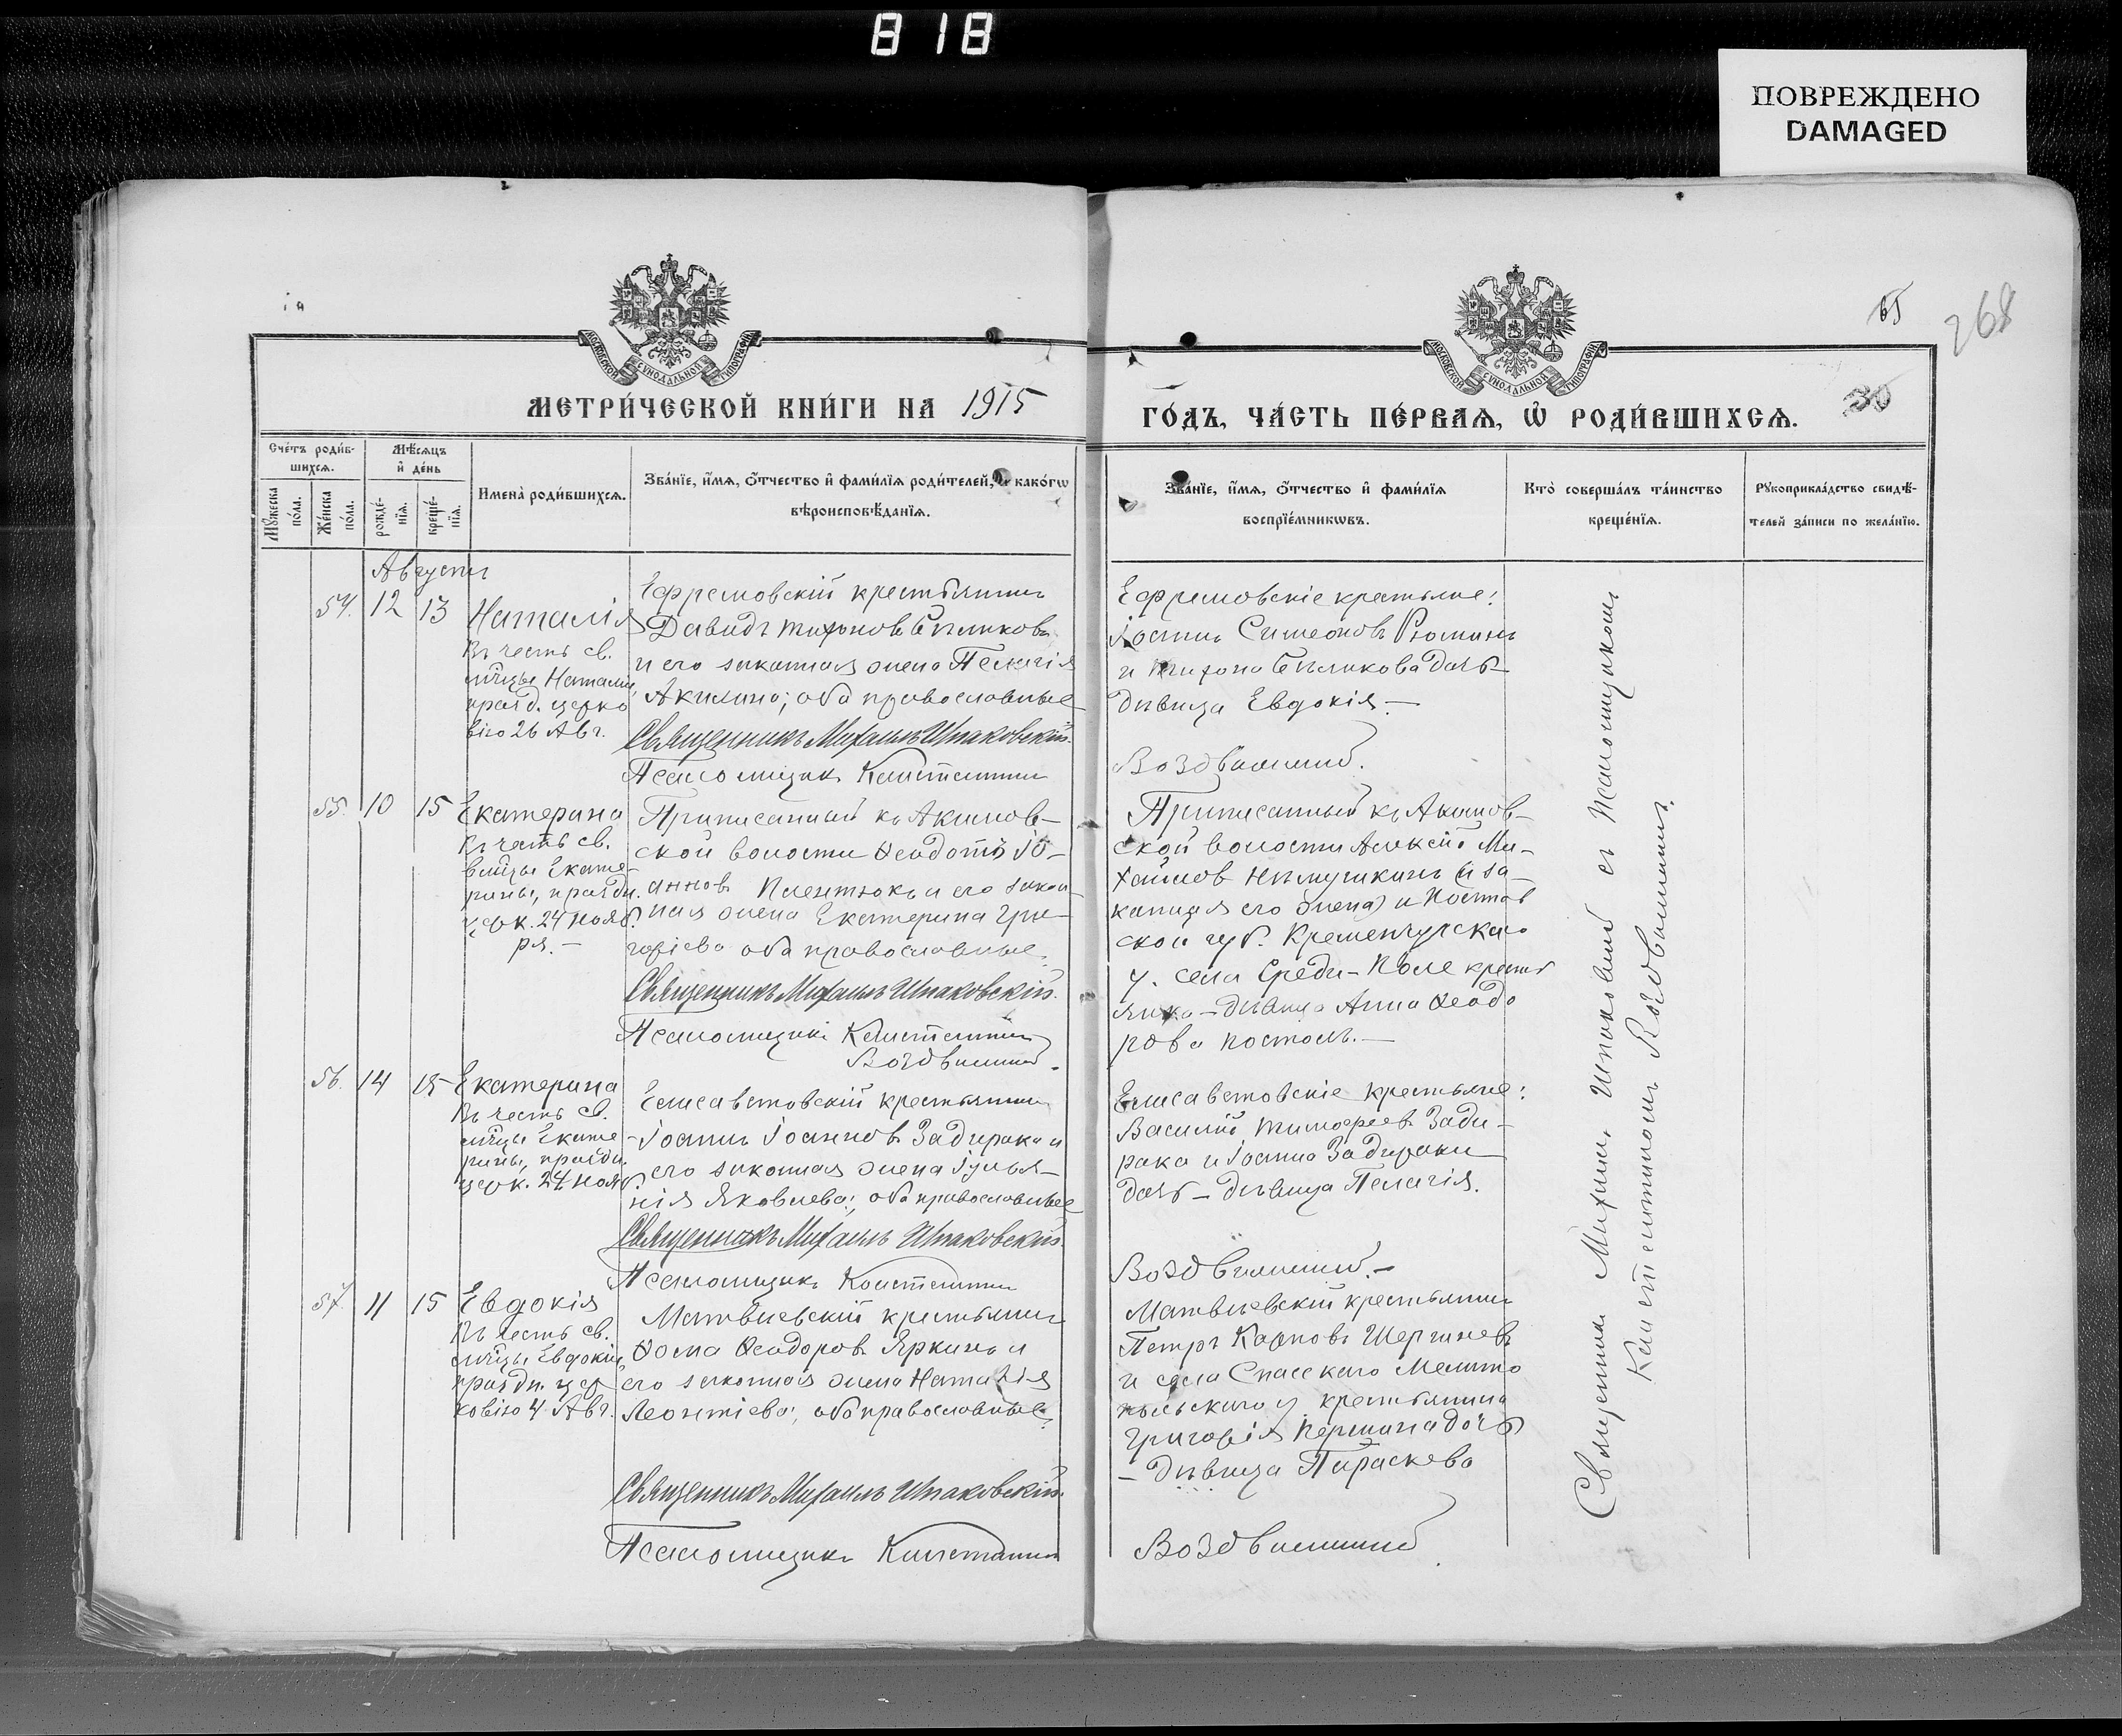 818
ПОВРЕЖДЕНО
DAMAGED
65
268
30
МОСКОВСКОЙ СѴНОДАЛЬНОЙ ТИПОГРАФІИ
МОСКОВСКОЙ СѴНОДАЛЬНОЙ ТИПОГРАФІИ
МЕТРИ́ЧЕСКОЙ КНИ́ГИ НА 1915
ГО́ДЪ, ЧА́СТЬ ПЕ́РВАѦ, Ѡ҆ РОДИ́ВШИХСѦ.
Сче́тъ роди́в-
шихсѧ.
Мꙋ́жеска по́ла.
Же́нска по́ла.
Мѣ́сѧцъ
и҆ де́нь
рожде́-
нїѧ.
креще́-
нїѧ.
Имена̀ роди́вшихсѧ.
Зва́нїе, и҆́мѧ, ѻ҆́тчество и҆ фами́лїѧ роди́телей, и҆ како́гѡ
вѣроисповѣ́данїѧ.
Зва́нїе, и҆́мѧ, ѻ҆́тчество и҆ фами́лїѧ
воспрїе́мникѡвъ.
Кто̀ соверша́лъ та́инство
креще́нїѧ.
Рꙋкоприкла́дство свидѣ́-
телей за́писи по жела́нїю.
Августъ
54. 12 13 Наталія
Въ честь св.
мч̃цы Наталіи,
празд. церко
вію 26 Авг.
Ефремовскій крестьянинъ
Давидъ Тихоновъ Бѣликовъ
и его законная жена Пелагія
Акилина; оба православные
Священникъ Михаилъ Шпаковскій.
Псаломщикъ Константинъ
Ефремовскіе крестьяне:
Іоаннъ Симеоновъ Рюминъ
и Тихона Бѣликова дочь
дѣвица Евдокія.—
Воздвиженскій.
55. 10 15 Екатерина
Въ честь св.
в̃мцы Екате-
рины, праздн.
церк. 24 нояб
ря.—
Приписанный къ Акимов-
ской волости Ѳеодотъ Іо-
анновъ и его закон-
ная жена Екатерина Гри-
горіева оба православные.
Священникъ Михаилъ Шпаковскій.
Псаломщикъ Константинъ
Воздвиженскій.
Приписанный къ Акимов-
ской волости Алексій Ми-
хайлов (и за-
конная его жена) и Полтав
ской губ. Кременчугскаго
у. села крестья
янка — дѣвица Анна Ѳеодо
рова
56. 14 15 Екатерина
Въ честь св.
мч̃цы Екате-
рины, праздн.
церк. 24 нояб.
Елисаветовскій крестьянинъ
Іоаннъ Іоанновъ Задирака и
его законная жена Іулiа-
нія Яковлева; оба православные
Священникъ Михаилъ Шпаковскій.
Псаломщикъ Константинъ
Елисаветовскіе крестьяне:
Василій Тимофеевъ Зади-
рака и Іоанна Задираки
дочь — дѣвица Пелагія.
Воздвиженскій.—
57. 11 15 Евдокія
Въ честь св.
мч̃цы Евдокіи,
праздн. цер
ковію 4 Авг.
Матвѣевскій крестьянинъ
Ѳома Ѳеодоровъ Яркинъ и
его законная жена Наталія
Леонтіева; оба православные.
Священникъ Михаилъ Шпаковскій.
Псаломщикъ Константинъ
Матвѣевскій крестьянинъ
Петръ Карповъ
и села Спасскаго Мелито
польскаго у. крестьянина
Григорія дочь
— дѣвица Параскева
Воздвиженскій
Священникъ Михаилъ Шпаковскій съ Псаломщикомъ
Константиномъ Воздвиженскимъ.